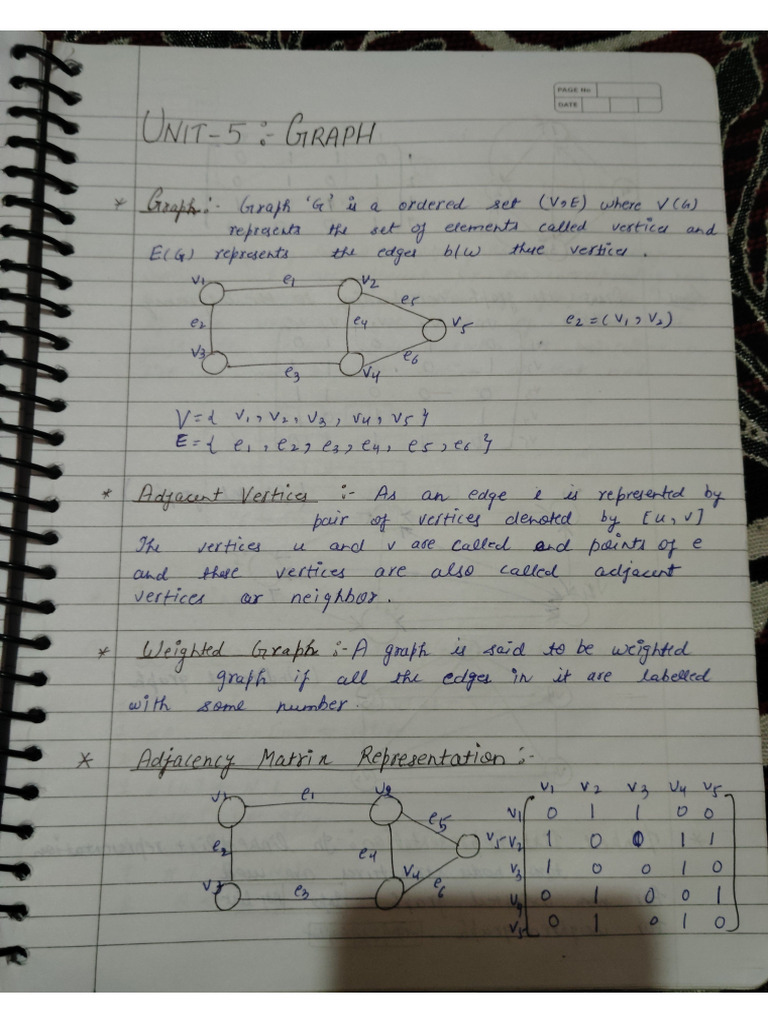 PAGE No
DATE
UNIT-5 :- GRAPH
* Graph :- Graph 'G' is a ordered set (V, E) where V(G)
represents the set of elements called vertices and
E(G) represents the edges b/w these vertices.
v1 e1 v2
e5
e2 e4 v5 e2 = (v1, v2)
v3 e6
e3 v4
V = { v1, v2, v3, v4, v5 }
E = { e1, e2, e3, e4, e5, e6 }
* Adjacent Vertices :- As an edge e is represented by
pair of vertices denoted by [u, v]
The vertices u and v are called end points of e
and these vertices are also called adjacent
vertices or neighbor.
* Weighted Graph :- A graph is said to be weighted
graph if all the edges in it are labelled
with some number.
* Adjacency Matrix Representation :-
v1 e1 v2 v1 v2 v3 v4 v5
e5 v1 0 1 1 0 0
e2 e4 v5 v2 1 0 0 1 1
v3 v4 e6 v3 1 0 0 1 0
e3 v4 0 1 0 0 1
v5 0 1 0 1 0